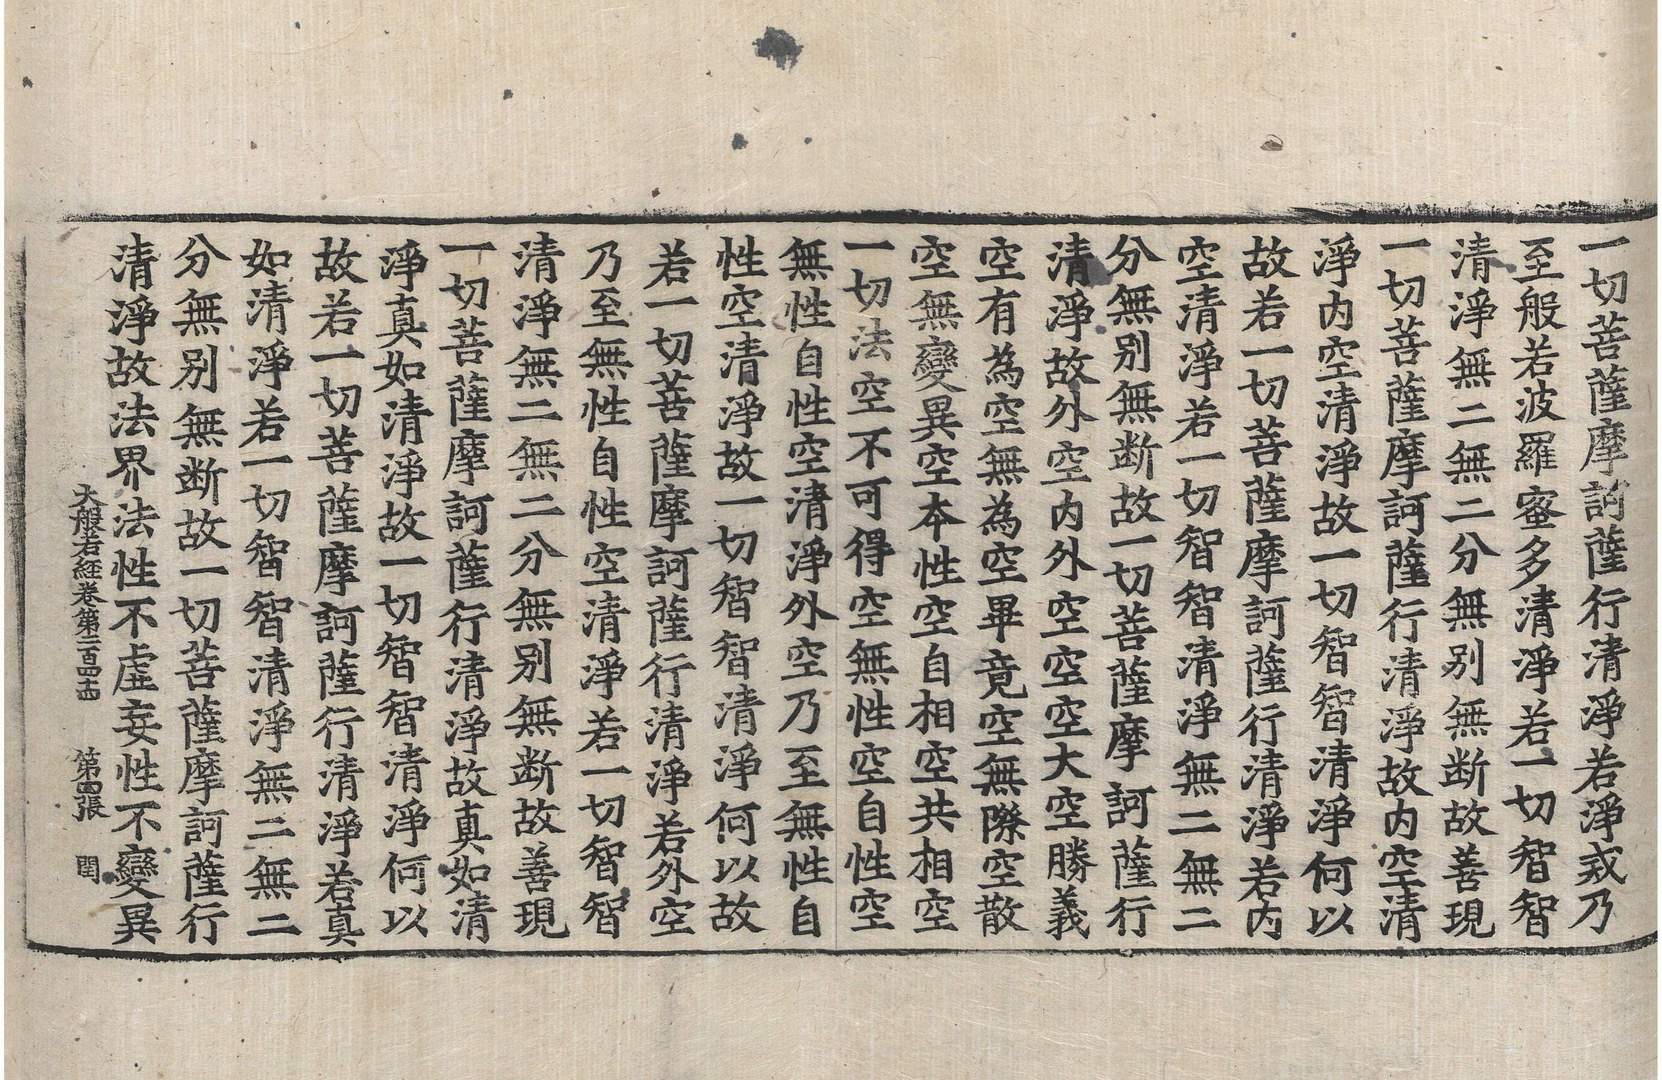 一切菩薩摩訶薩行清淨若淨戒乃
至般若波羅蜜多清淨若一切智智
清淨無二無二分無別無断故善現
一切菩薩摩訶薩行清淨故内空清
淨内空清淨故一切智智清淨何以
故若一切菩薩摩訶薩行清淨若内
空清淨若一切智智清淨無二無二
分無別無断故一切菩薩摩訶薩行
清淨故外空内外空空空大空勝義
空有為空無為空畢竟空無際空散
空無變異空本性空自相空共相空
一切法空不可得空無性空自性空
無性自性空清淨外空乃至無性自
性空清淨故一切智智清淨何以故
若一切菩薩摩訶薩行清淨若外空
乃至無性自性空清淨若一切智智
清淨無二無二分無別無断故善現
一切菩薩摩訶薩行清淨故真如清
淨真如清淨故一切智智清淨何以
故若一切菩薩摩訶薩行清淨若真
如清淨若一切智智清淨無二無二
分無別無断故一切菩薩摩訶薩行
清淨故法界法性不虛妄性不變異
大般若経卷第二百四十四 第四張 閏